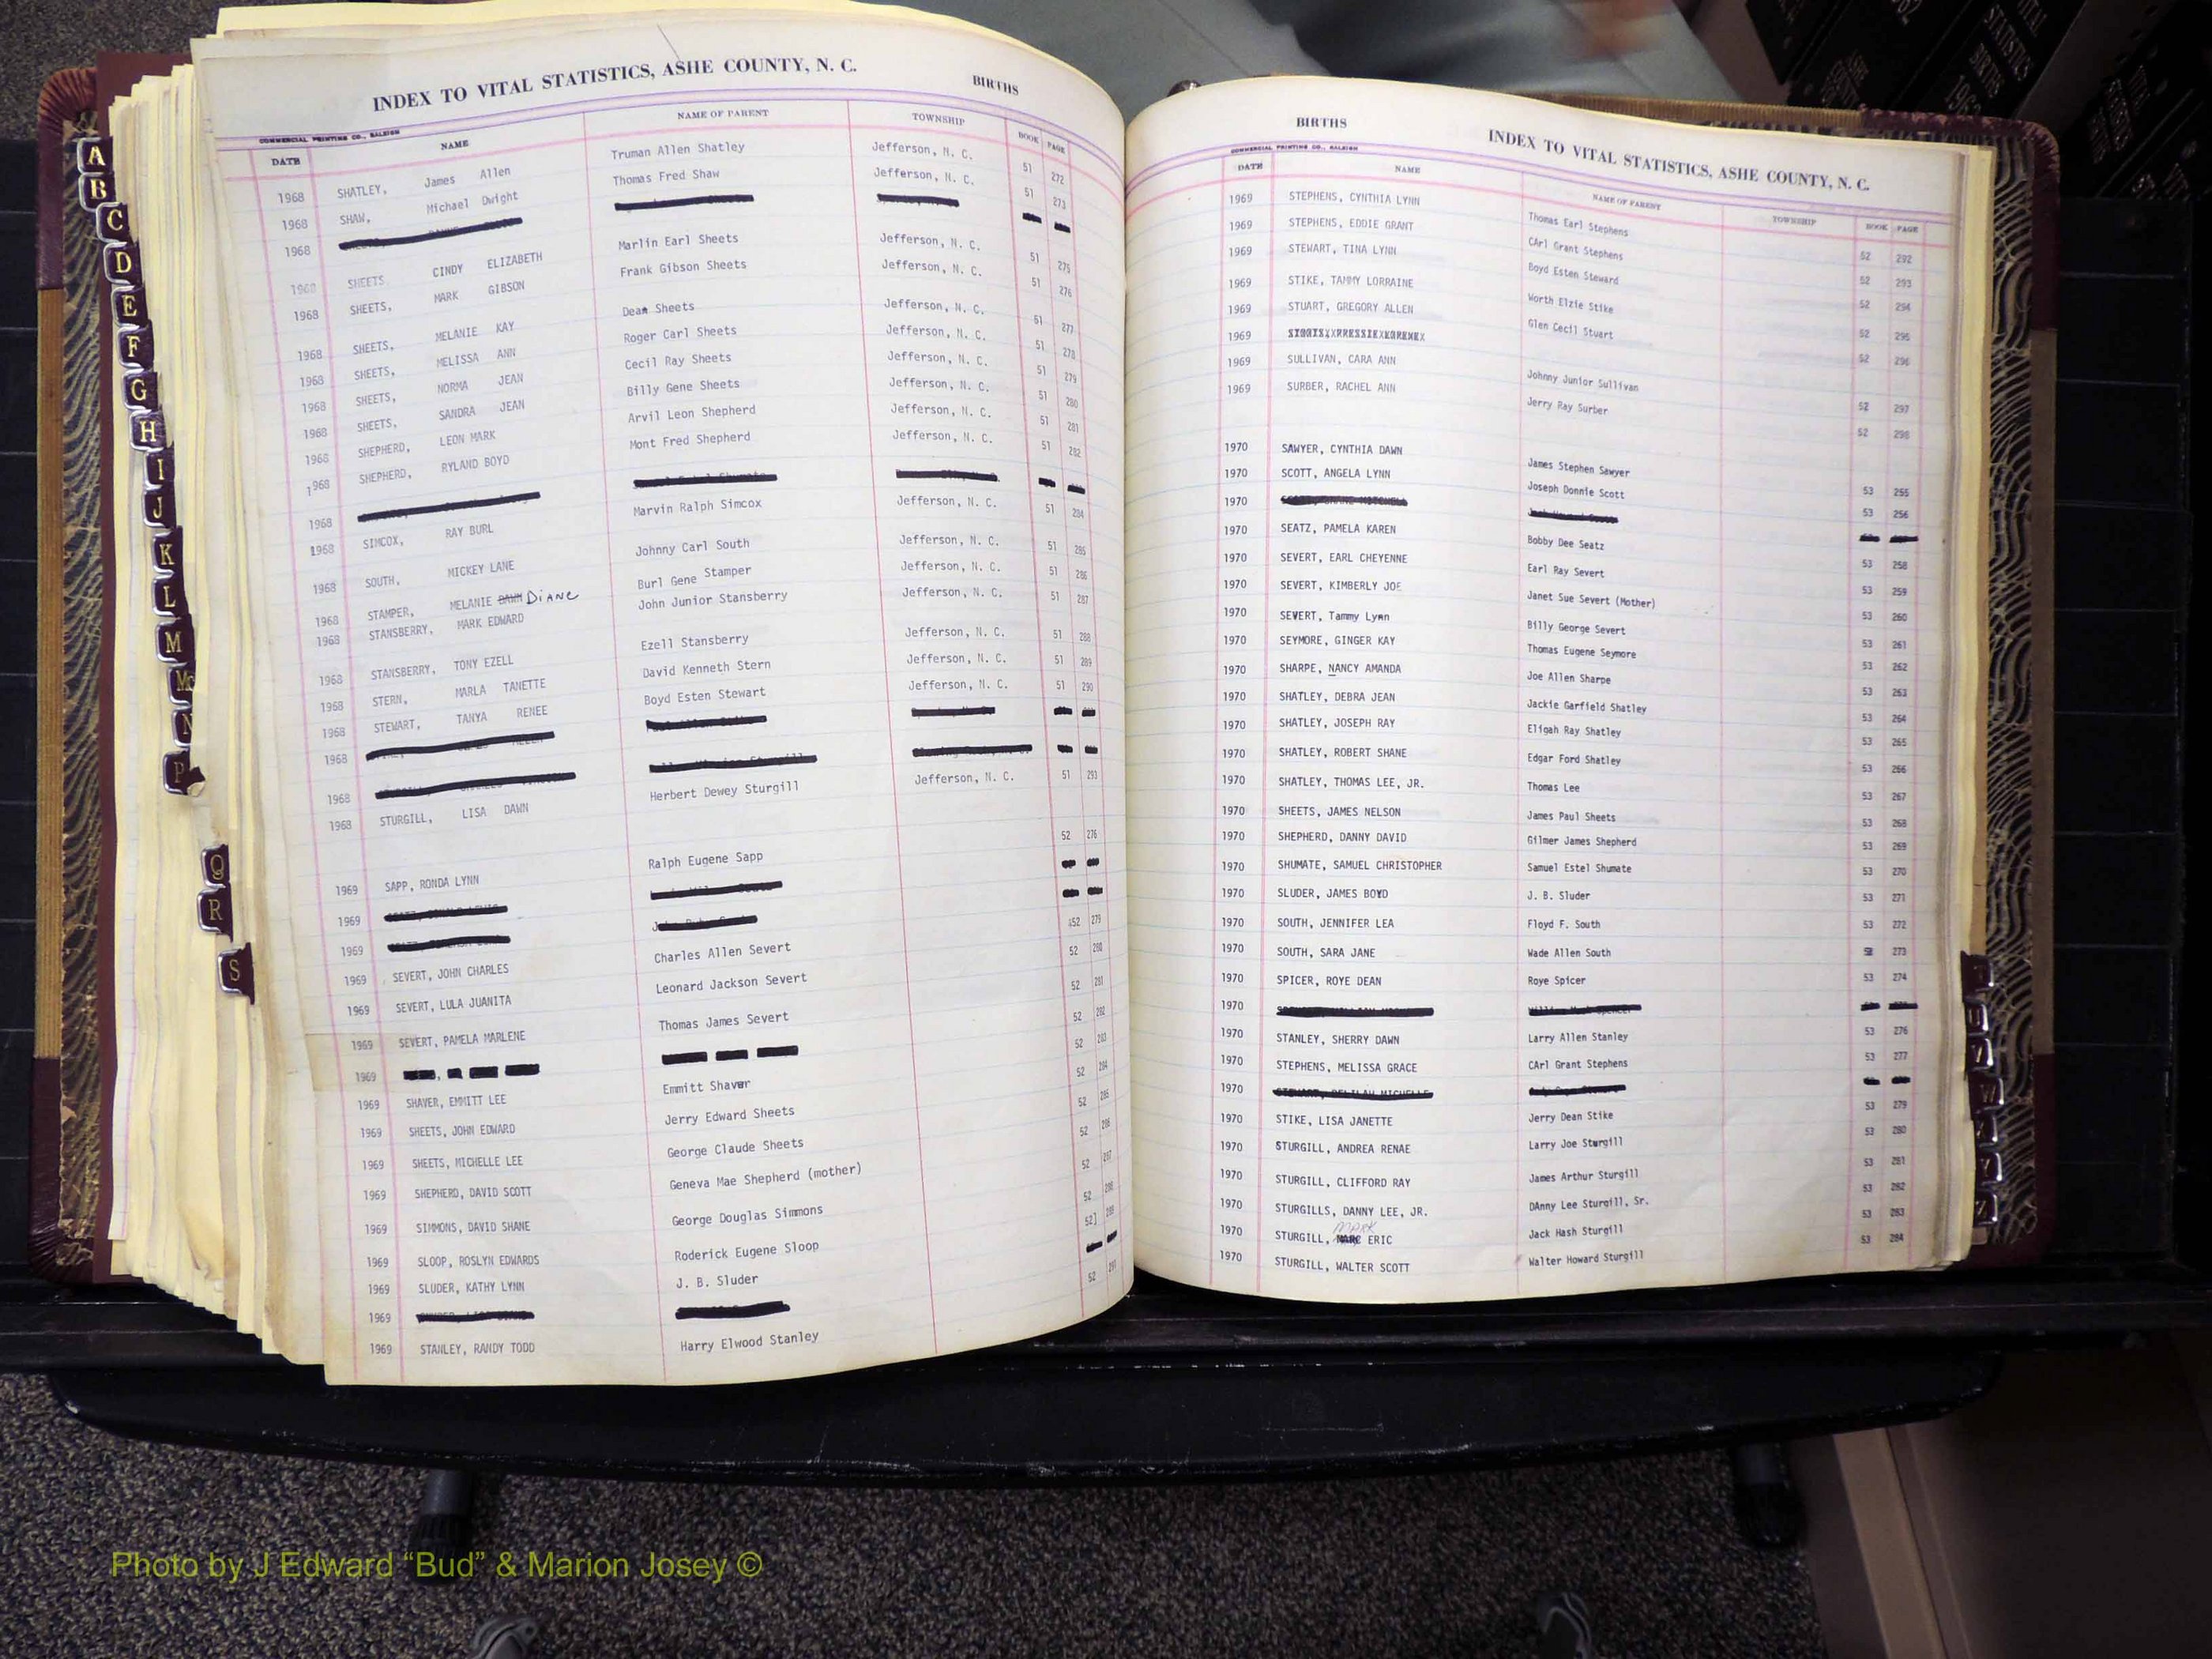 INDEX TO VITAL STATISTICS, ASHE COUNTY, N. C. BIRTHS
COMMERCIAL PRINTING CO., RALEIGH
DATE NAME NAME OF PARENT TOWNSHIP BOOK PAGE
1968 SHATLEY, James Allen Truman Allen Shatley Jefferson, N. C. 51 272
1968 SHAW, Michael Dwight Thomas Fred Shaw Jefferson, N. C. 51 273
1968
1968 SHEETS, CINDY ELIZABETH Marlin Earl Sheets Jefferson, N. C. 51 275
1968 SHEETS, MARK GIBSON Frank Gibson Sheets Jefferson, N. C. 51 276
1968 SHEETS, MELANIE KAY Dean Sheets Jefferson, N. C. 51 277
1968 SHEETS, MELISSA ANN Roger Carl Sheets Jefferson, N. C. 51 278
1968 SHEETS, NORMA JEAN Cecil Ray Sheets Jefferson, N. C. 51 279
1968 SHEETS, SANDRA JEAN Billy Gene Sheets Jefferson, N. C. 51 280
1968 SHEPHERD, LEON MARK Arvil Leon Shepherd Jefferson, N. C. 51 281
1968 SHEPHERD, RYLAND BOYD Mont Fred Shepherd Jefferson, N. C. 51 282
1968
1968 SIMCOX, RAY BURL Marvin Ralph Simcox Jefferson, N. C. 51 284
1968 SOUTH, MICKEY LANE Johnny Carl South Jefferson, N. C. 51 285
1968 STAMPER, MELANIE DAWN Diane Burl Gene Stamper Jefferson, N. C. 51 286
1968 STANSBERRY, MARK EDWARD John Junior Stansberry Jefferson, N. C. 51 287
1968 STANSBERRY, TONY EZELL Ezell Stansberry Jefferson, N. C. 51 288
1968 STERN, MARLA TANETTE David Kenneth Stern Jefferson, N. C. 51 289
1968 STEWART, TANYA RENEE Boyd Esten Stewart Jefferson, N. C. 51 290
1968
1968
1968 STURGILL, LISA DAWN Herbert Dewey Sturgill Jefferson, N. C. 51 293
1969 SAPP, RONDA LYNN Ralph Eugene Sapp 52 276
1969
1969
1969 SEVERT, JOHN CHARLES Charles Allen Severt 52 279
1969 SEVERT, LULA JUANITA Leonard Jackson Severt 52 280
1969 SEVERT, PAMELA MARLENE Thomas James Severt 52 281
1969 52 282
1969 SHAVER, EMMITT LEE Emmitt Shaver 52 283
1969 SHEETS, JOHN EDWARD Jerry Edward Sheets 52 284
1969 SHEETS, MICHELLE LEE George Claude Sheets 52 285
1969 SHEPHERD, DAVID SCOTT Geneva Mae Shepherd (mother) 52 286
1969 SIMMONS, DAVID SHANE George Douglas Simmons 52 287
1969 SLOOP, ROSLYN EDWARDS Roderick Eugene Sloop 52 288
1969 SLUDER, KATHY LYNN J. B. Sluder 52] 289
1969
1969 STANLEY, RANDY TODD Harry Elwood Stanley 52 291
A
B
C
D
E
F
G
H
I
J
K
L
M
Mc
N
P
Q
R
S
BIRTHS INDEX TO VITAL STATISTICS, ASHE COUNTY, N. C.
COMMERCIAL PRINTING CO., RALEIGH
DATE NAME NAME OF PARENT TOWNSHIP BOOK PAGE
1969 STEPHENS, CYNTHIA LYNN Thomas Earl Stephens 52 292
1969 STEPHENS, EDDIE GRANT CArl Grant Stephens 52 293
1969 STEWART, TINA LYNN Boyd Esten Steward 52 294
1969 STIKE, TAMMY LORRAINE Worth Elzie Stike 52 295
1969 STUART, GREGORY ALLEN Glen Cecil Stuart 52 296
1969
1969 SULLIVAN, CARA ANN Johnny Junior Sullivan 52 297
1969 SURBER, RACHEL ANN Jerry Ray Surber 52 298
1970 SAWYER, CYNTHIA DAWN James Stephen Sawyer 53 255
1970 SCOTT, ANGELA LYNN Joseph Donnie Scott 53 256
1970
1970 SEATZ, PAMELA KAREN Bobby Dee Seatz 53 258
1970 SEVERT, EARL CHEYENNE Earl Ray Severt 53 259
1970 SEVERT, KIMBERLY JOE Janet Sue Severt (Mother) 53 260
1970 SEVERT, Tammy Lynn Billy George Severt 53 261
1970 SEYMORE, GINGER KAY Thomas Eugene Seymore 53 262
1970 SHARPE, NANCY AMANDA Joe Allen Sharpe 53 263
1970 SHATLEY, DEBRA JEAN Jackie Garfield Shatley 53 264
1970 SHATLEY, JOSEPH RAY Eligah Ray Shatley 53 265
1970 SHATLEY, ROBERT SHANE Edgar Ford Shatley 53 266
1970 SHATLEY, THOMAS LEE, JR. Thomas Lee 53 267
1970 SHEETS, JAMES NELSON James Paul Sheets 53 268
1970 SHEPHERD, DANNY DAVID Gilmer James Shepherd 53 269
1970 SHUMATE, SAMUEL CHRISTOPHER Samuel Estel Shumate 53 270
1970 SLUDER, JAMES BOYD J. B. Sluder 53 271
1970 SOUTH, JENNIFER LEA Floyd F. South 53 272
1970 SOUTH, SARA JANE Wade Allen South 273
1970 SPICER, ROYE DEAN Roye Spicer 53 274
1970
1970 STANLEY, SHERRY DAWN Larry Allen Stanley 53 276
1970 STEPHENS, MELISSA GRACE CArl Grant Stephens 53 277
1970
1970 STIKE, LISA JANETTE Jerry Dean Stike 53 279
1970 STURGILL, ANDREA RENAE Larry Joe Sturgill 53 280
1970 STURGILL, CLIFFORD RAY James Arthur Sturgill 53 281
1970 STURGILLS, DANNY LEE, JR. DAnny Lee Sturgill, Sr. 53 282
1970 STURGILL, MARK ERIC Jack Hash Sturgill 53 283
1970 STURGILL, WALTER SCOTT Walter Howard Sturgill 53 284
W
Z
VITAL
STATISTICS
BIRTHS
Photo by J Edward “Bud” & Marion Josey ©